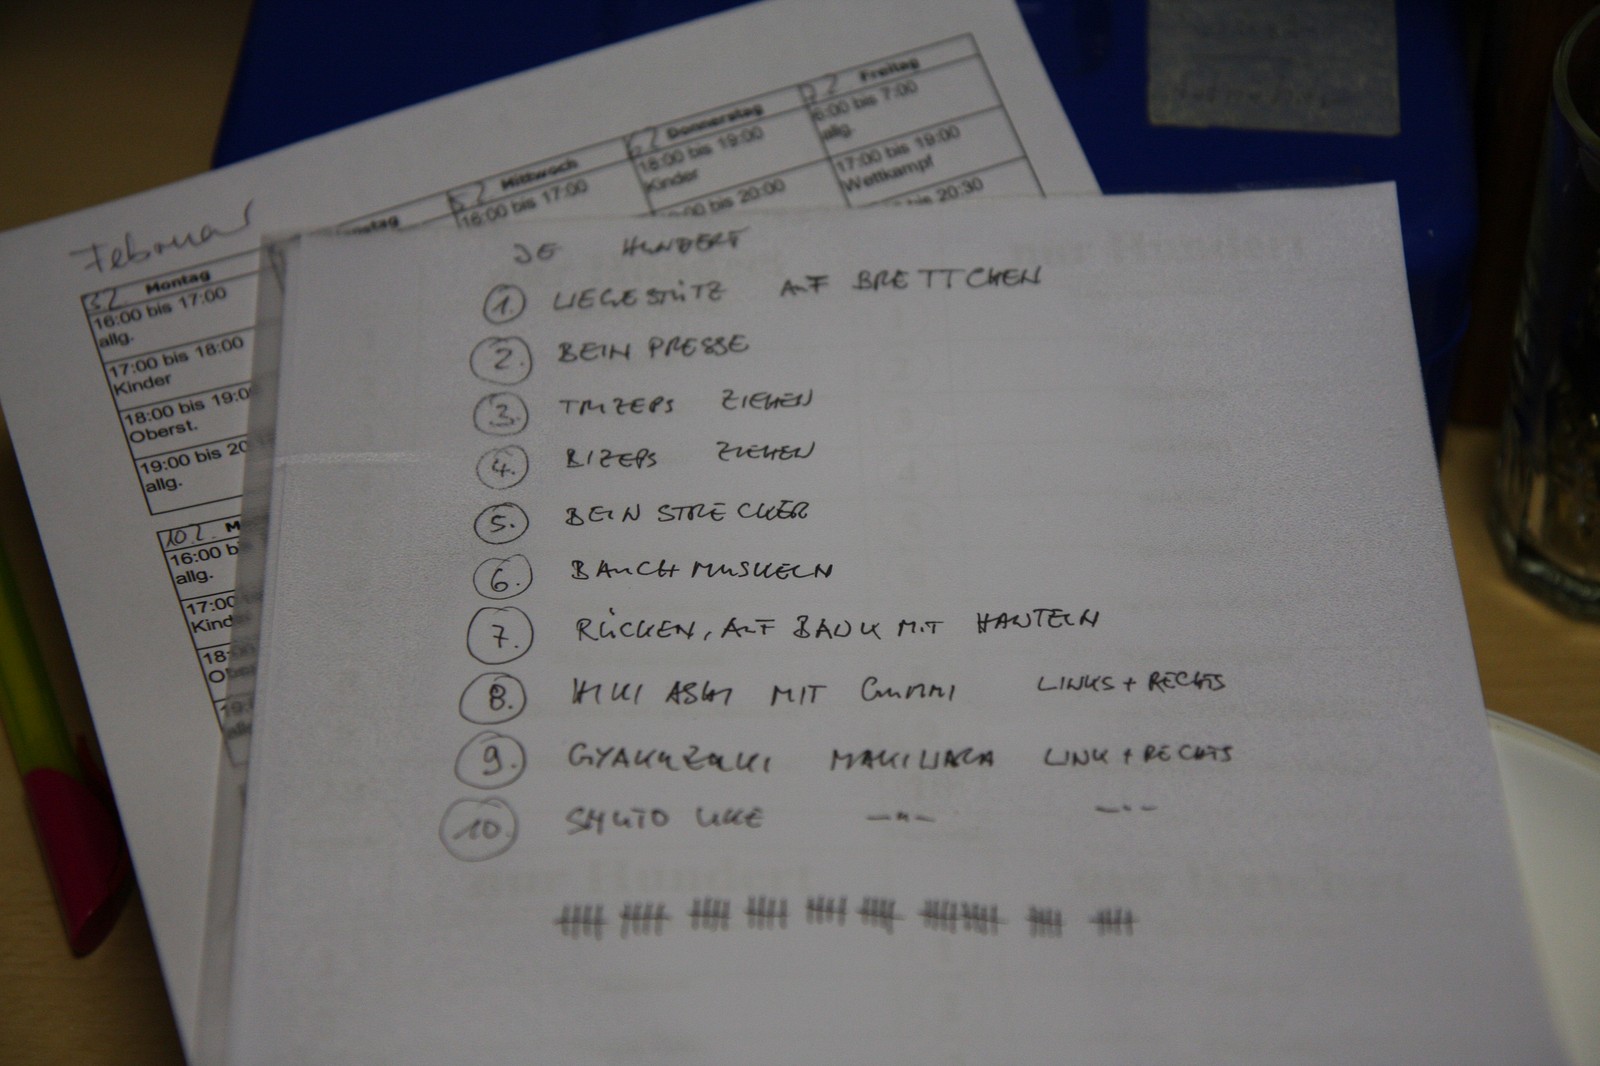 Februar
Montag
16:00 bis 17:00
allg.
17:00 bis 18:00
Kinder
18:00 bis 19:0
Oberst.
19:00 bis 20
allg.
10.2. M
16:00 b
allg.
17:00
Kind
18:
Mittwoch
16:00 bis 17:00
Donnerstag
18:00 bis 19:00
Kinder
00 bis 20:00
Freitag
6:00 bis 7:00
allg.
17:00 bis 19:00
Wettkampf
bis 20:30
JE HUNDERT
1. LIEGESTÜTZ AUF BRETTCHEN
2. BEIN PRESSE
3. TRIZEPS ZIEHEN
4. BIZEPS ZIEHEN
5. BEIN STRECKER
6. BAUCH MUSKELN
7. RÜCKEN, AUF BANK MIT HANTELN
8. HIKI ASHI MIT GUMMI LINKS + RECHTS
9. GYAKUZUKI MAKIWARA LINK + RECHTS
10. SHUTO UKE —"— —"—